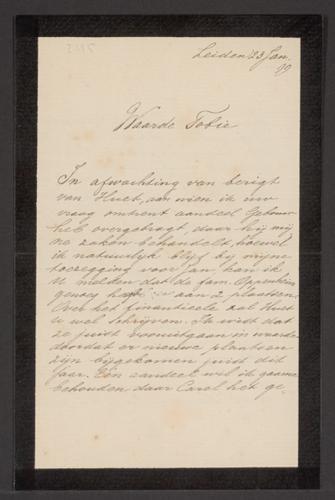 Leiden 23 Jan.
99
Waarde Tobie
In afwachting van berigt
van Huet, aan wien ik uw
vraag omtrent aandeel Gebouw
heb overgebragt daar hij mij
ne zaken behandeld, hoewel
ik natuurlijk blijf bij mijne
toezegging voor Jan, kan ik
U melden dat de fam. Oppenheim
genoeg heeft aan 2 plaatsen.
Over het financieele zal Huet
u wel schrijven. Ik vind dat
ze juist vooruitgaan in waarde
doordat er nieuwe plaatsen
zijn bijgekomen juist dit
jaar. Één aandeel wil ik gaarne
behouden daar Carel het ge-